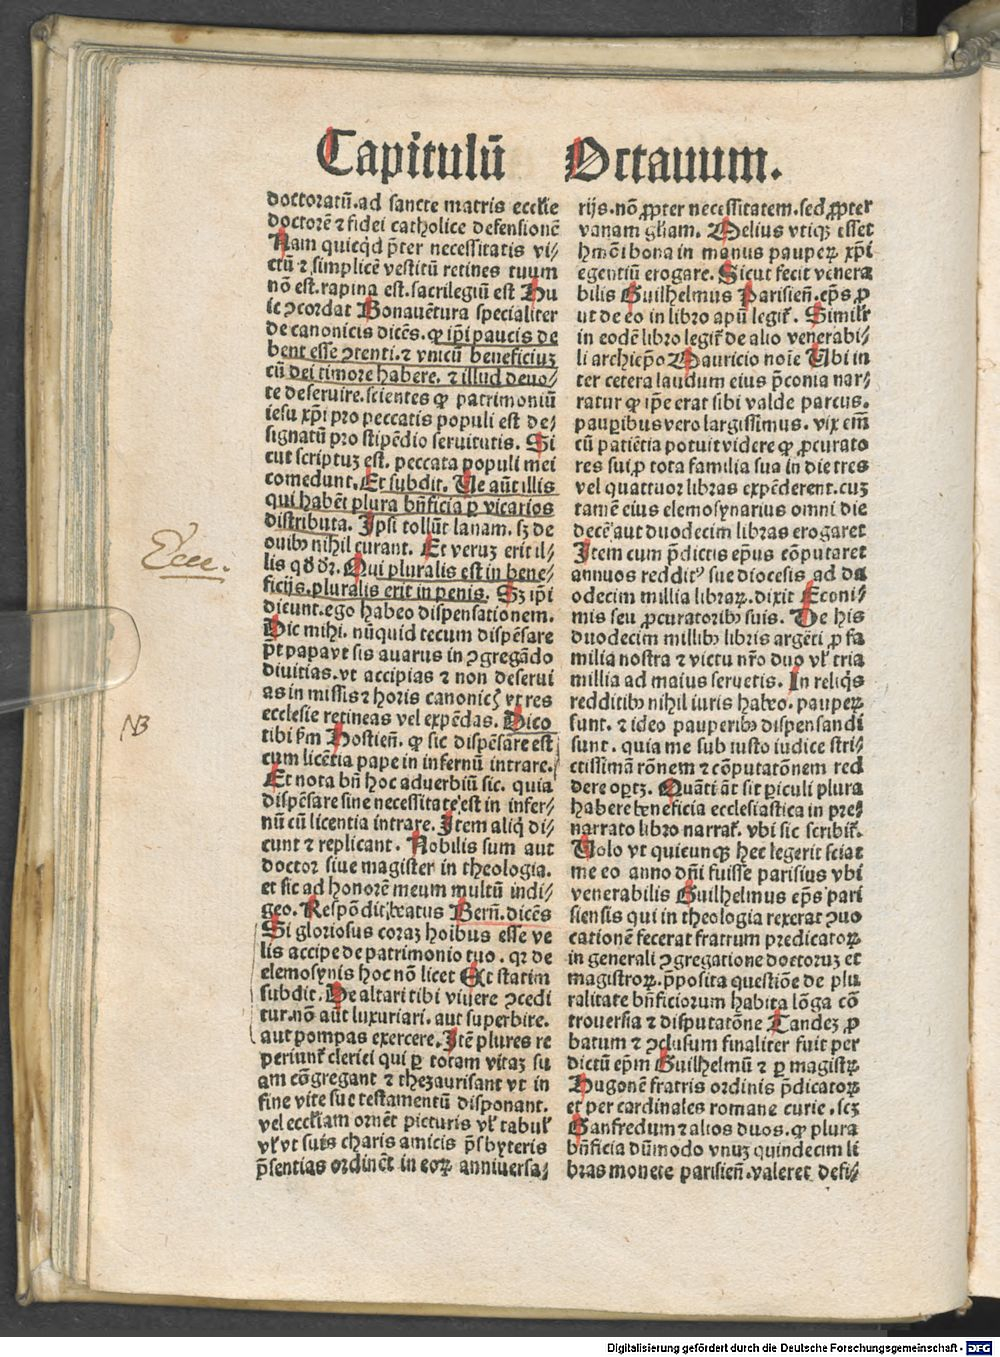 Capitulū Octauum.
doctoratū.ad sancte matris ecclie
doctorē ⁊ fidei catholice defensionē
Nam quicq̄d p̄ter necessitatis vi⸗
ctū ⁊ simplicē vestitū retines tuum
nō est.rapina est.sacrilegiū est Hu
ic ꝯcordat Bonauētura specialiter
de canonicis dicēs. ꝙ ip̄i paucis de
bent esse ꝯtenti.⁊ vnicū beneficiuꝫ
cū dei timore habere. ⁊ illud deuo⸗
te deseruire.scientes ꝙ patrimoniū
iesu xp̄i pro peccatis populi est de⸗
signatū pro stipēdio seruitutis. Si
cut scriptuꝫ est. peccata populi mei
comedunt. Et subdit. Ue aūt illis
qui habēt plura bn̄ficia ꝑ vicarios
distributa. Ipsi tollūt lanam. sꝫ de
ouibꝰ nihil curant. Et veruꝫ erit il⸗
lis qd̄ dr̄. Qui pluralis est in bene⸗
ficijs.pluralis erit in penis. Sꝫ ip̄i
dicunt.ego habeo dispensationem.
Dic mihi. nūquid tecum dispēsare
pt̄ papa vt sis auarus in ꝯgregādo
diuitias.vt accipias ⁊ non deserui
as in missis ⁊ horis canonicꝭ vt res
ecclesie retineas vel expēdas. Dico
tibi ẜm Hostien̄. ꝙ sic dispēsare est
cum licētia pape in infernū intrare.
Et nota bn̄ hoc aduerbiū sic. quia
dispēsare sine necessitate est in infer⸗
nū cū licentia intrare. Item aliq̄ di⸗
cunt ⁊ replicant. Nobilis sum aut
doctor siue magister in theologia.
et sic ad honorē meum multū indi⸗
geo. Respōdit beatus Bern̄. dicēs
Si gloriosus coraꝫ hoībus esse ve
lis accipe de patrimonio tuo. qꝛ de
elemosynis hoc nō licet Et statim
subdit. De altari tibi viuere ꝯcedi
tur.nō aūt luxuriari. aut superbire.
aut pompas exercere. Itē plures re
periunt̄ clerici qui ꝑ totam vitaꝫ su
am cōgregant ⁊ thezaurisant vt in
fine vite sue testamentū disponant.
vel eccliam ornēt picturis vl̄ tabul̄
vl̄ vt suis charis amicis p̄sbyteris
p̄sentias ordinēt in eoꝝ anniuersa⸗
rijs.nō ꝓpter necessitatem.sed ꝓpter
vanam gliam. Melius vtiqꝫ esset
hmōi bona in manus pauperꝝ xp̄i
egentiū erogare. Sicut fecit venera
bilis Guilhelmus Parisien̄.ep̄s ꝓ
ut de eo in libro apū legit̄. Similr̄
in eodē libro legit̄ de alio venerabi⸗
li archiep̄o Mauricio noīe Ubi in
ter cetera laudum eius p̄conia nar⸗
ratur ꝙ ip̄e erat sibi valde parcus.
paupibus vero largissimus. vix em̄
cū patiētia potuit videre ꝙ ꝓcurato
res sui ꝓ tota familia sua in die tres
vel quattuor libras expēderent.cuꝫ
tamē eius elemosynarius omni die
decē aut duodecim libras erogaret
Item cum p̄dictus ep̄us cōputaret
annuos redditꝰ sue diocesis ad du
odecim millia libraꝝ. dixit Econi⸗
mis seu ꝓcuratoribꝰ suis. De his
duodecim millibꝰ libris argēti ꝓ fa
milia nostra ⁊ victu nr̄o duo vl̄ tria
millia ad maius seruetis. In reliq̄s
redditibꝰ nihil iuris habeo. pauperꝝ
sunt. ⁊ ideo pauperibꝰ dispensandi
sunt. quia me sub iusto iudice stri⸗
ctissimā rōnem ⁊ cōputatōnem red
dere oꝑtꝫ. Quāti āt sit ꝑiculi plura
habere beneficia ecclesiastica in pre⸗
narrato libro narrat̄. vbi sic scribit̄.
Uolo vt quicunqꝫ hec legerit sciat
me eo anno dn̄i fuisse parisius vbi
venerabilis Guilhelmus ep̄s pari
siensis qui in theologia rexerat ꝯuo
cationē fecerat fratrum predicatoꝝ
in generali ꝯgregatione doctoruꝫ et
magistroꝝ. p̄posita questiōe de plu
ralitate bn̄ficiorum habita lōga cō
trouersia ⁊ disputatōne Tandeꝫ ꝓ
batum ⁊ ꝯclusum finaliter fuit per
dictū ep̄m Guilhelmū ⁊ ꝑ magistꝝ
Hugonē fratris ordinis p̄dicatoꝝ
et per cardinales romane curie. scꝫ
Ganfredum ⁊ alios duos. ꝙ plura
bn̄ficia dūmodo vnuꝫ quindecim li
bras monete parisien̄.valeret defi⸗
NB
Digitalisierung gefördert durch die Deutsche Forschungsgemeinschaft - DFG